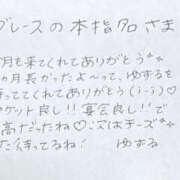 ブレースの本指名さま
月も来てくれてありがとう
ヵ月長かったよ〜って、ゆするを
ってくれてありがとう(ı-ı)♡
ケット良し!!宴会良し!!で
高だったね♡次はチーズ
た待ってるね! ゆする